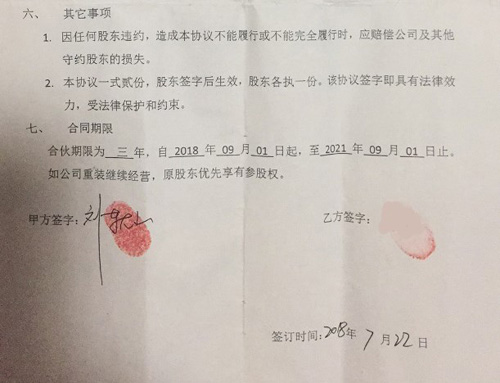 六、 其它事项
1. 因任何股东违约，造成本协议不能履行或不能完全履行时，应赔偿公司及其他
守约股东的损失。
2. 本协议一式贰份，股东签字后生效，股东各执一份。该协议签字即具有法律效
力，受法律保护和约束。
七、 合同期限
合伙期限为 三 年，自 2018 年 09 月 01 日起，至 2021 年 09 月 01 日止。
如公司重装继续经营，原股东优先享有参股权。
甲方签字： 刘 乙方签字：
签订时间：208年 7 月 22 日